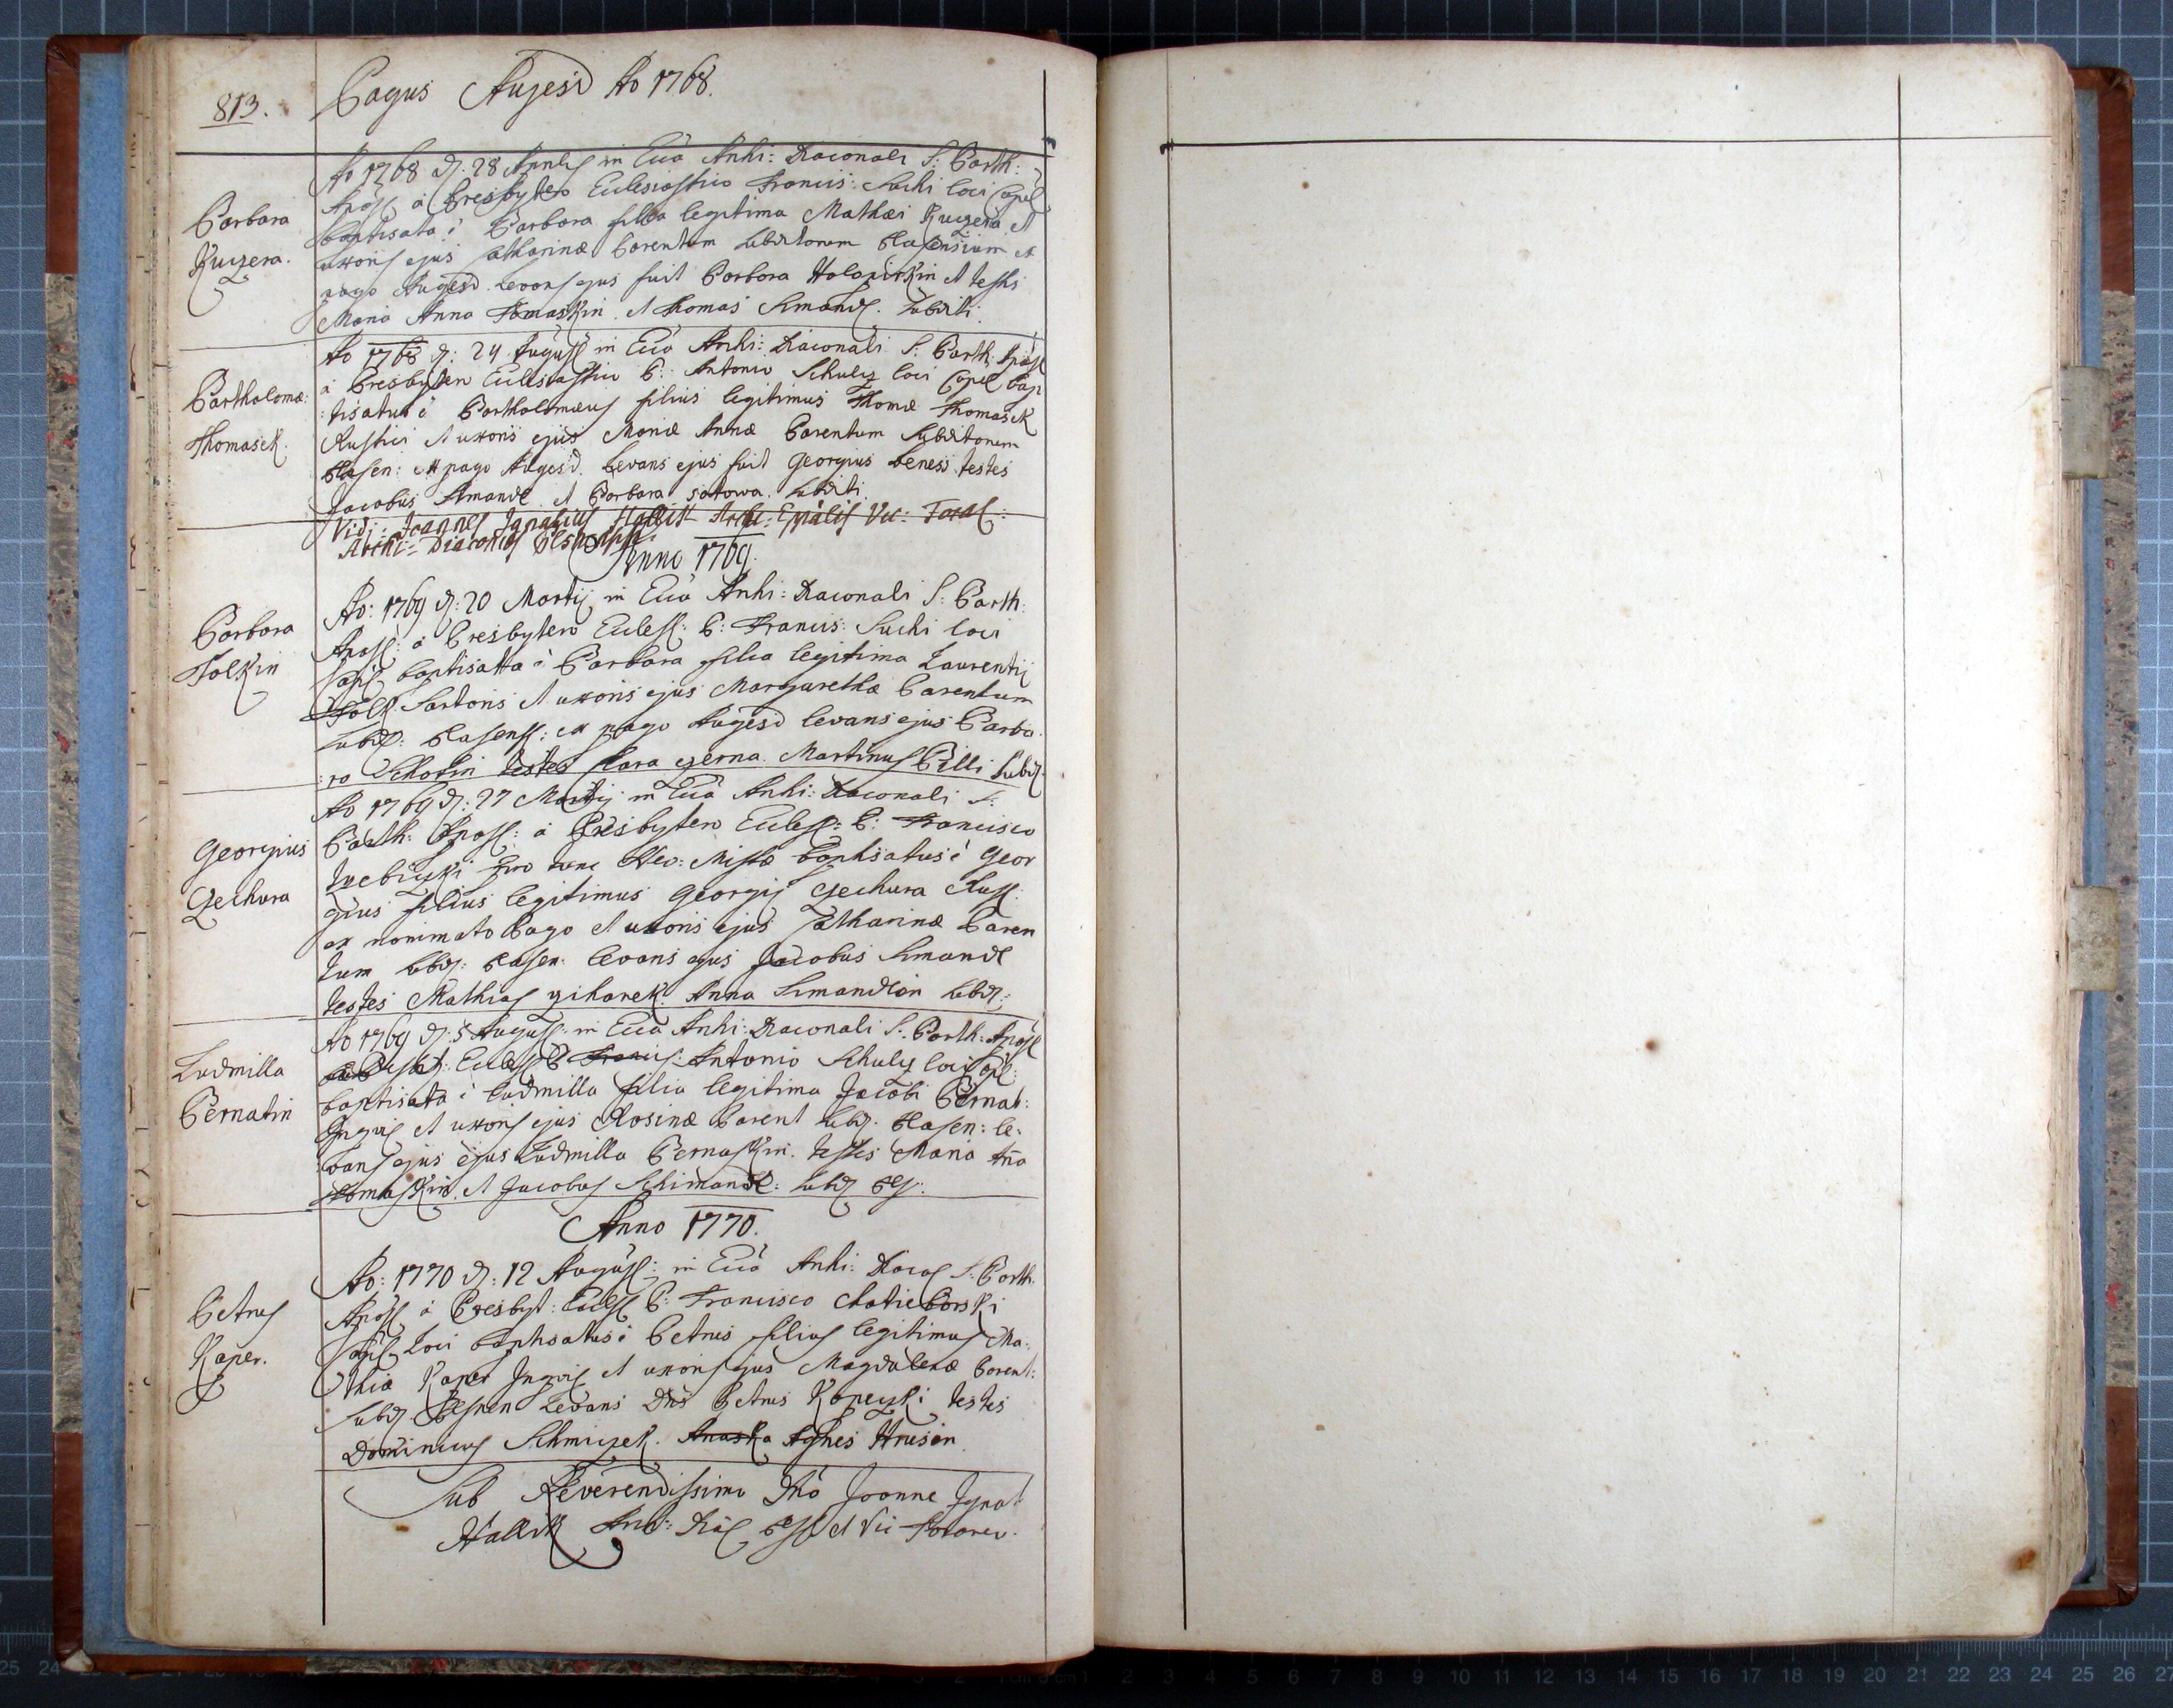 813.
Pagus Augesd Ao 1768.
Barbara
Kuczera.
Ao 1768 d: 28 Aprilis in Ecca Archi: Diaconali S: Barth:
Apost à Presbytero Eclesiastico Francis: Suchi loci Capel
baptisata ẽ Barbara filia legitima Mathæi Kuczera et
uxoris ejus Catharinæ Parentum subditorum Plasensium ex
pago Augesd. Levans ejus fuit Barbara et testis
Maria Anna Tomaskin. et Thomas Simandl. subditi.
Bartholomæ:
Thomasek.
Ao 1768 d: 24 August in Ecca Archi: Diaconali S: Barth. Apost
à Presbytero Eclesiastico P: Antonio Schulz loci Capel bap
tisatus ẽ Bartholomæus filius legitimus Thomæ Thomasek
Rustici et uxoris ejus Mariæ Annæ Parentum Subditorum
Plasen: ex pago Augesd. Levans ejus fuit Georgius Beness. testes
Jacobus Simandl et Barbara sotowa. subditi.
Vidi Joannes Ignatius Hallik Archi: Epālis Vic: Foral:
Archi=Diaconus
Anno 1769.
Barbara
Folkin
Ao: 1769 d: 20 Martij in Ecca Archi: Diaconali S: Barth:
Apost: à Presbytero Eclesi: P: Francis: Suchi loci
Capel baptisatta ẽ Barbara filia legitima Laurentij
Folk Sartoris et uxoris ejus Margarethæ Parentum
subd: Plasens: ex pago Augesd levans ejus Barba
:ra testes Clara czerna. Martinus Pilli subd.
Georgius
Czechura
Ao 1769 d: 27 Martij in Ecca Archi: Diaconali S:
Barth: Apost: à Presbytero Eclesi: P: Francisco
pro tunc Neo: Mistæ baptisatus ẽ Geor
gius filius legitimus Georgij Czechura Rust:
ex nominato Pago et uxoris ejus Catharinæ Paren
tum subd: Plasen: levans ejus Jacobus Simandl
testes Mathias Anna Simandlon subd:
Ludmilla
Bernatin
Ao 1769 d: 5 August: in Ecca Archi: Diaconali S: Barth: Apost
Eclesi P Francis: Antonio Schulz loci Capel:
baptisata ẽ Ludmilla filia legitima Jacobi Bernat:
Inqui et uxoris ejus Rosinæ Parent subd. Plasen: le:
vans ejus ejus Ludmilla Bernaskin. testes Maria Aña
Tomaskin. et Jacobus Schimandl: subd
Anno 1770.
Petrus
Kaper.
Ao: 1770 d: 12 August: in Ecca Archi: Diacol S: Barth.
Apost à Presbyt: Eclesi P: Francisco Ratieborski
Capel loci baptisatus ẽ Petrus filius legitimus Ma:
thiæ Kaper Inqui et uxoris ejus Magdalenæ Parent:
subd Levans Dñs Petrus Kopeczki testes
Dominicus Schmiczek. Anaska Agnes Hrusin.
Sub Reverendissimo Dño Joanne Ignat
Hallik et Vic Foraneo.